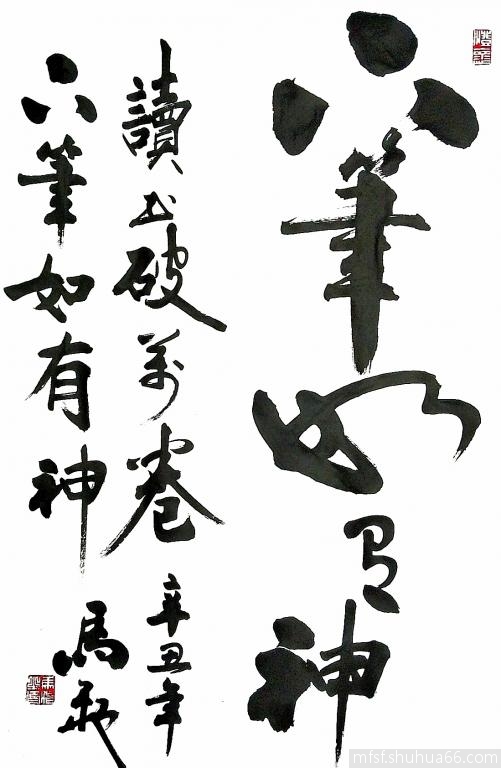 下筆如有神
讀書破萬卷
下筆如有神
辛丑年
馬
mfsf.shuhua66.com